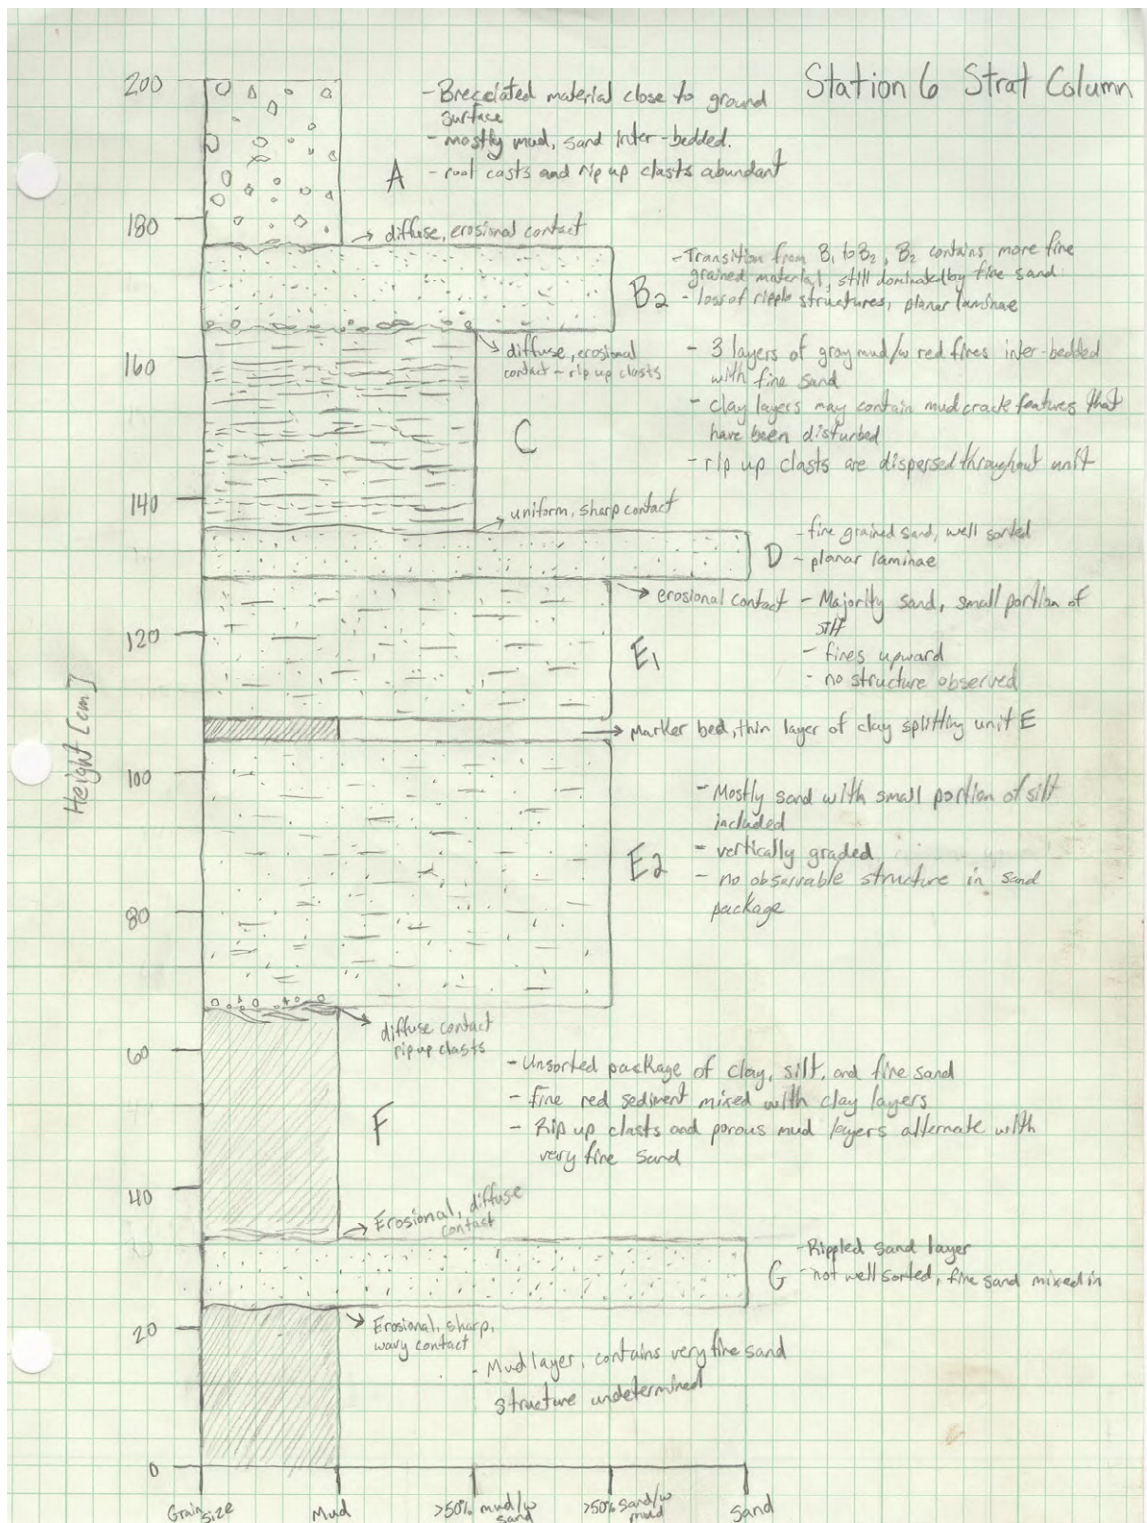 Station 6 Strat Column
200
- Brecciated material close to ground
surface
- mostly mud, sand inter-bedded.
A - root casts and rip up clasts abundant
180
→ diffuse, erosional contact
- Transition from B1 to B2, B2 contains more fine
grained material, still dominated by fine sand
B2 - loss of ripple structures, planar laminae
160
diffuse, erosional
contact - rip up clasts
- 3 layers of gray mud/w red fines inter-bedded
with fine sand
- clay layers may contain mudcrack features that
have been disturbed
C
- rip up clasts are dispersed throughout unit
140
uniform, sharp contact
- fine grained sand, well sorted
D - planar laminae
→ erosional contact - Majority sand, small portion of
silt
120
E1
- fines upward
- no structure observed
→ Marker bed, thin layer of clay splitting unit E
Height [cm]
100
- Mostly sand with small portion of silt
included
E2
- vertically graded
- no observable structure in sand
package
80
diffuse contact
rip up clasts
60
- Unsorted package of clay, silt, and fine sand
- Fine red sediment mixed with clay layers
F
- Rip up clasts and porous mud layers alternate with
very fine sand
40
→ Erosional, diffuse
contact
- Rippled sand layer
G - not well sorted, fine sand mixed in
20
→ Erosional, sharp,
wavy contact
- Mud layer, contains very fine sand
structure undetermined
0
Grain
size
Mud
>50% mud/w
sand
>50% sand/w
mud
Sand